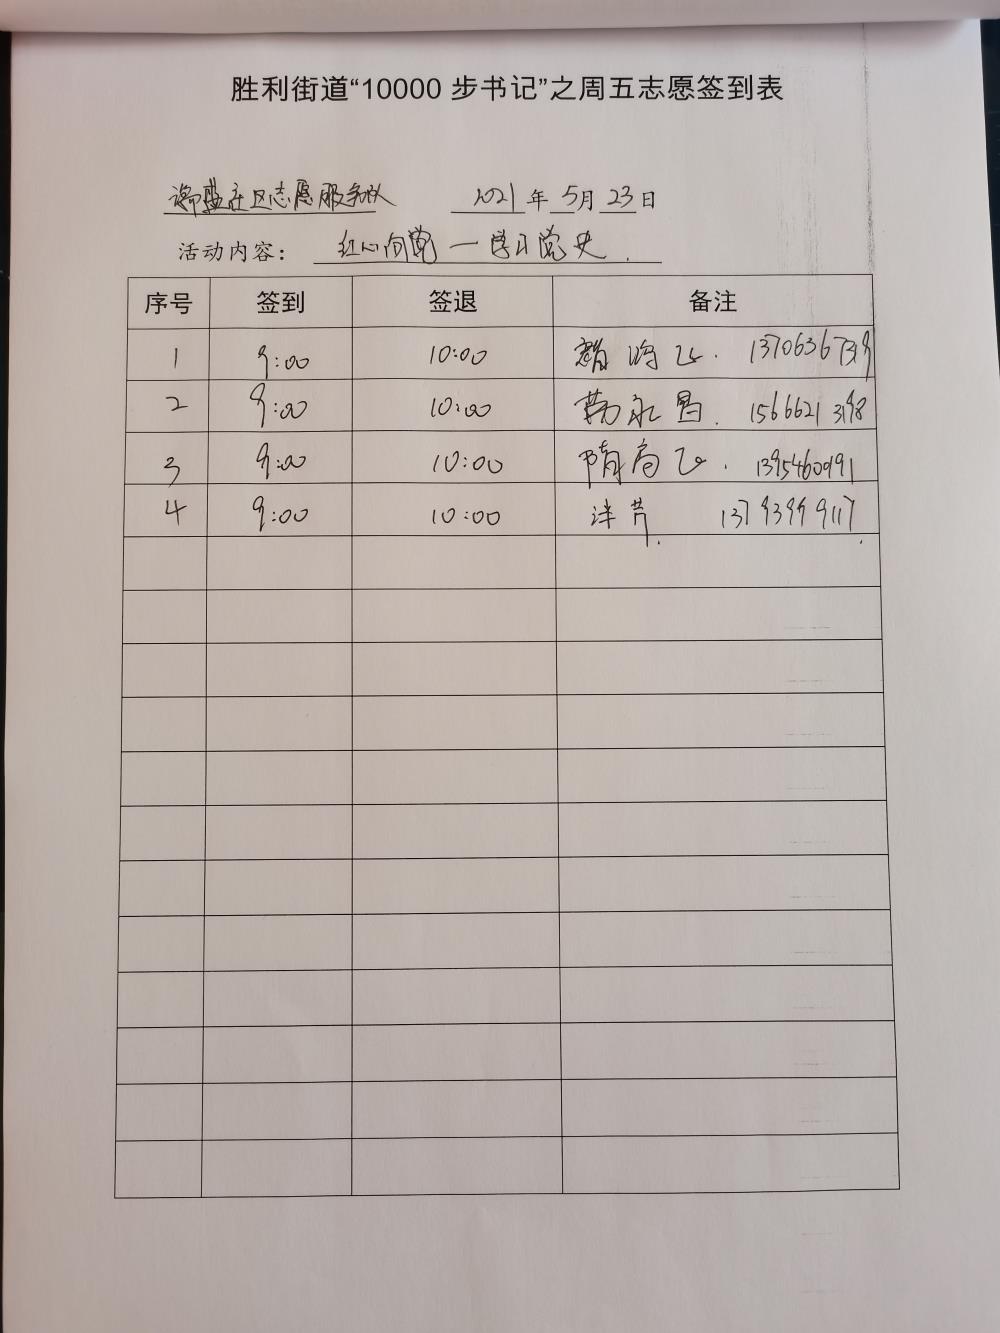 胜利街道“10000 步书记”之周五志愿签到表
社区志愿服务队 2021 年 5 月 23 日
活动内容： 红心向党 一 学习党史 .
序号 签到 签退 备注
1 9:00 10:00
2 9:00 10:00 永昌 .
3 9:00 10:00 隋 . 13954600191
4 9:00 10:00 13793999117